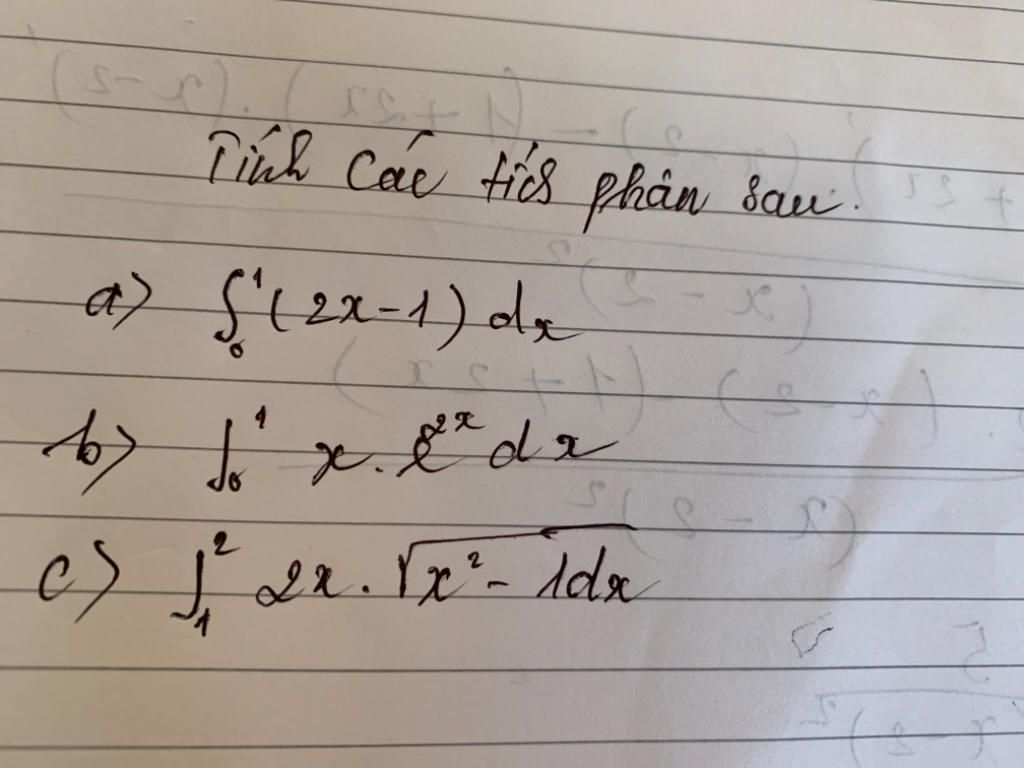 Tính Các tích phân sau:
a) ∫₀¹ (2x-1) dx
b) ∫₀¹ x. e²ˣ dx
c) ∫₁² 2x. √x²-1dx